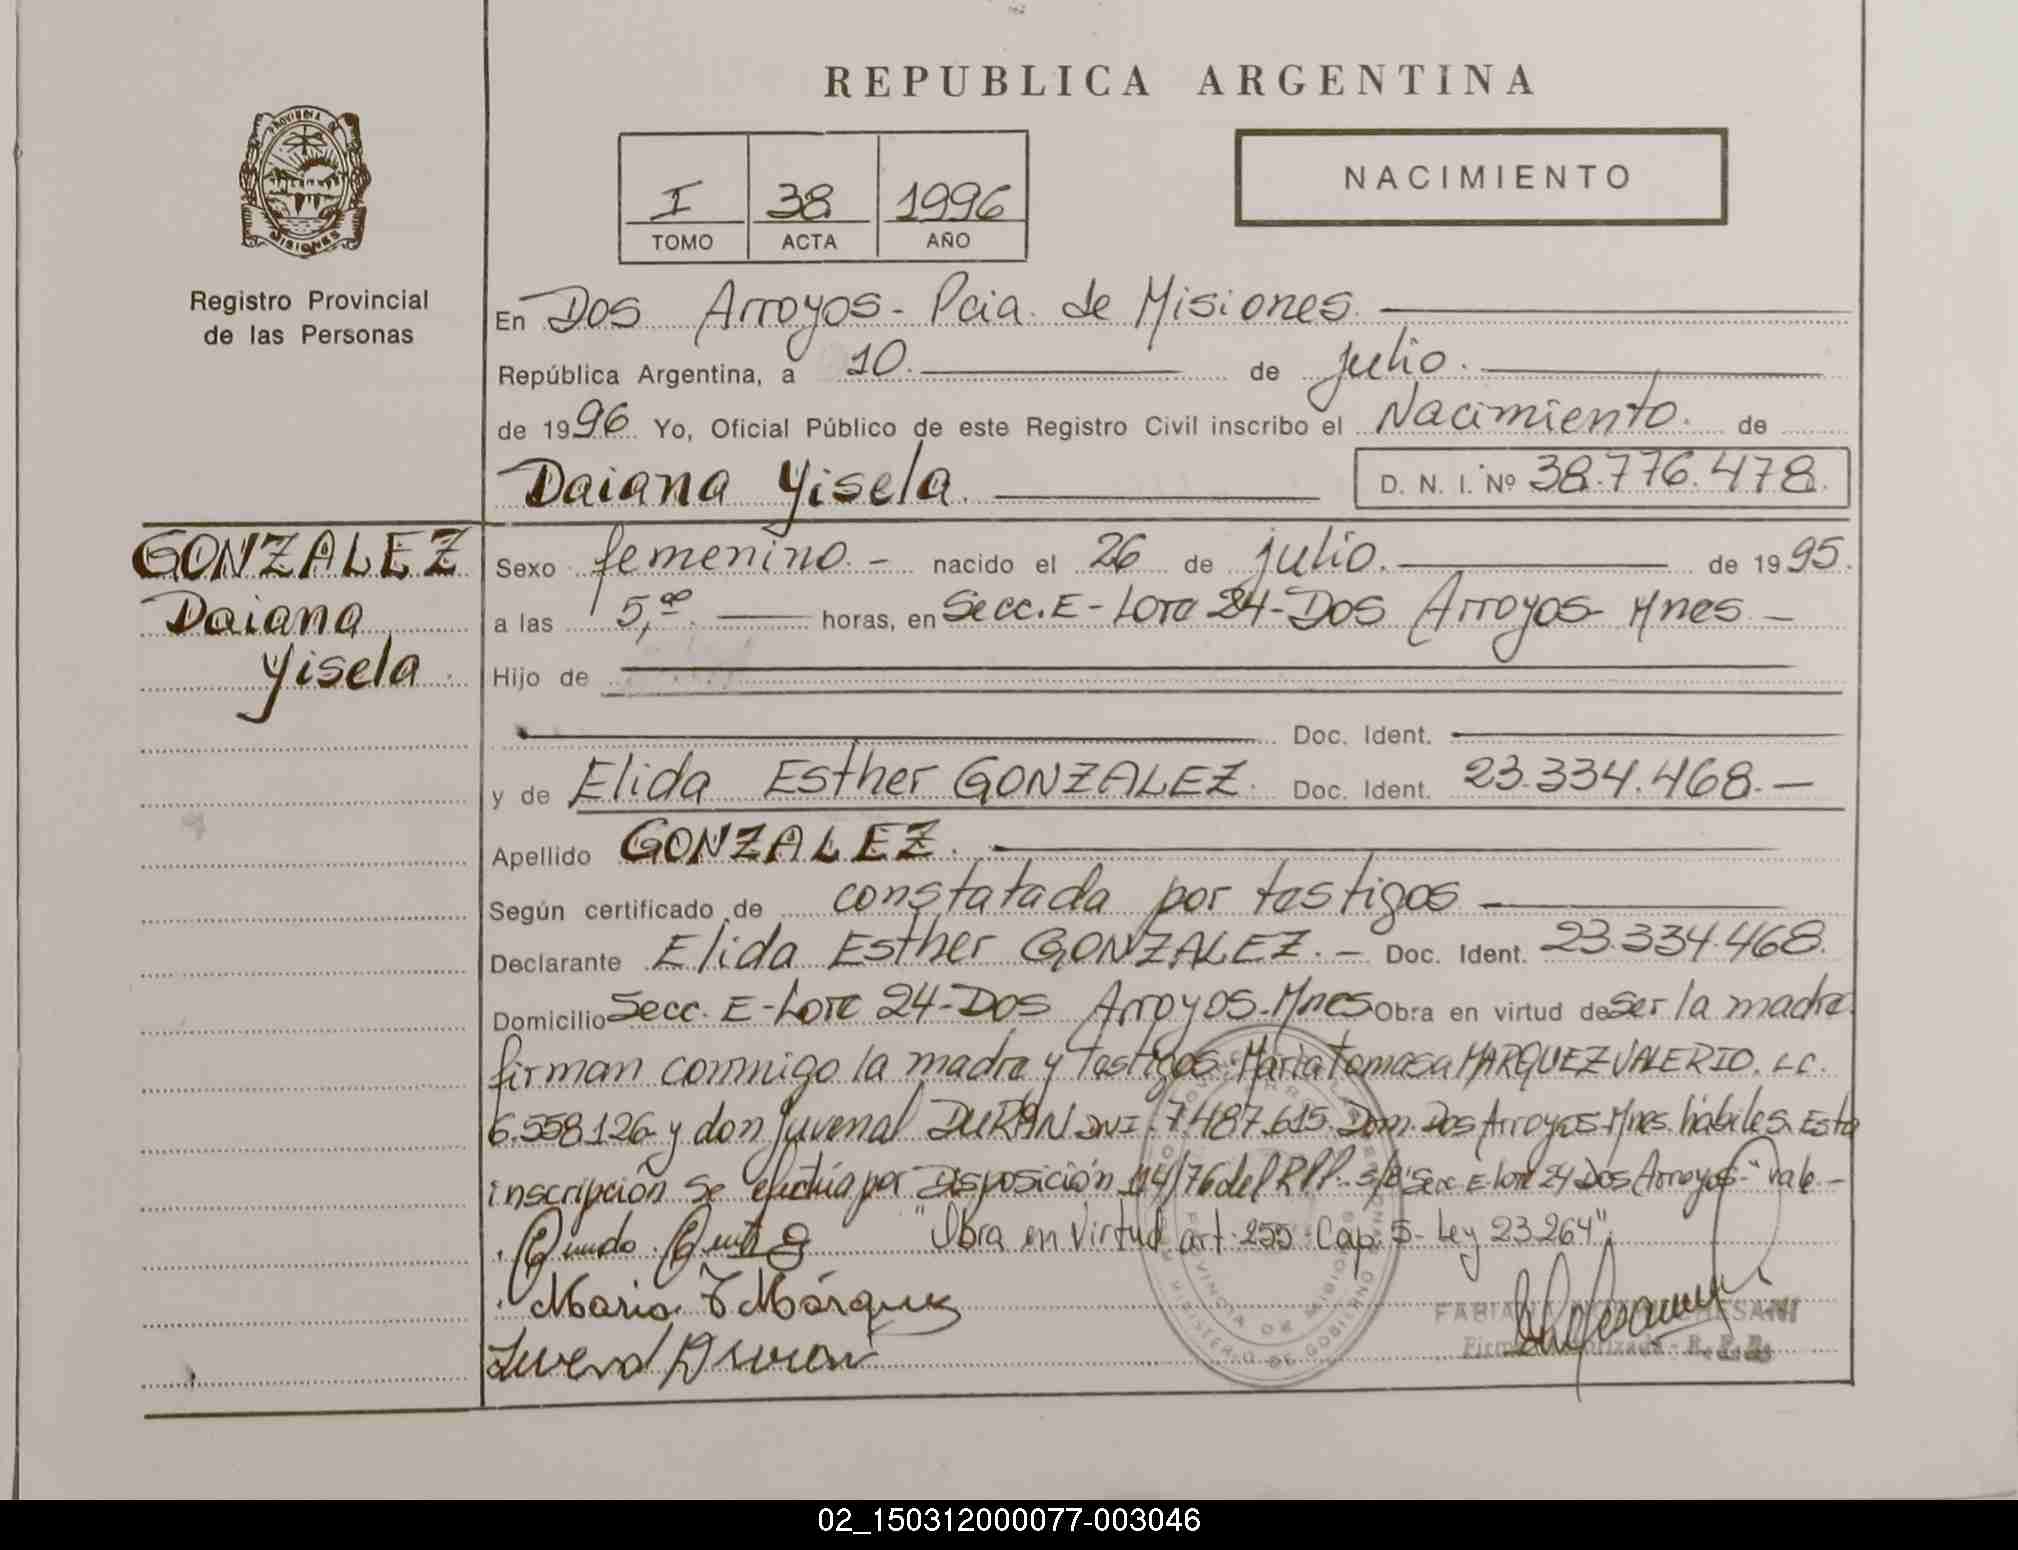 REPUBLICA ARGENTINA
PROVINCIA DE
MISIONES
Registro Provincial
de las Personas
I 38 1996
TOMO ACTA AÑO
NACIMIENTO
En Dos Arroyos - Pcia. de Misiones.
República Argentina, a 10. de julio.
de 1996 Yo, Oficial Público de este Registro Civil inscribo el Nacimiento. de
Daiana Yisela. D. N. I. Nº 38.776.478.
GONZALEZ
Daiana
Yisela.
Sexo femenino. - nacido el 26 de julio. de 1995.
a las 5,00. horas, en Secc. E - Lote 24 - Dos Arroyos - Mnes -
Hijo de
Doc. Ident.
y de Elida Esther GONZALEZ. Doc. Ident. 23.334.468. -
Apellido GONZALEZ.
Según certificado de constatada por testigos
Declarante Elida Esther GONZALEZ. - Doc. Ident. 23.334.468.
Domicilio Secc. E - Lote 24 - Dos Arroyos - Mnes Obra en virtud de ser la madre.
firman conmigo la madre y testigos: Maria Tomasa MARQUEZ VALERIO. L.C.
6.558.126 y don Juvenal DURAN DNI. 7.487.615. Dom. Dos Arroyos - Mnes. hábiles. Esta
inscripción se efectúa por Disposición 114/76 del R.P.P. - s/b "Secc. E - Lote 24 Dos Arroyos -" vale -
"Obra en Virtud art. 255 - Cap. 5 - Ley 23.264".
Maria T Márquez
Juvenal Duran
PROVINCIA DE MISIONES
MINISTERIO DE GOBIERNO
02_150312000077-003046